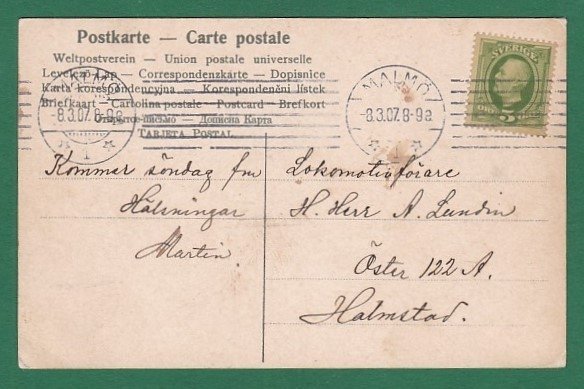 Postkarte — Carte postale
Weltpostverein — Union postale universelle
Levelező-Lap — Correspondenzkarte — Dopisnice
Karta korespondencyjna — Korespondenční lístek
Briefkaart — Cartolina postale — Postcard — Brefkort
Открытое письмо — Дописна Карта
TARJETA POSTAL
MALMÖ
8.3.07. 8-9a
1
MALMÖ
8.3.07. 8-9a
1
SVERIGE
5
Kommer söndag fm
Hälsningar
Martin.
Lokomotivförare
H. Herr A. Lundin
Öster 122 A.
Halmstad.